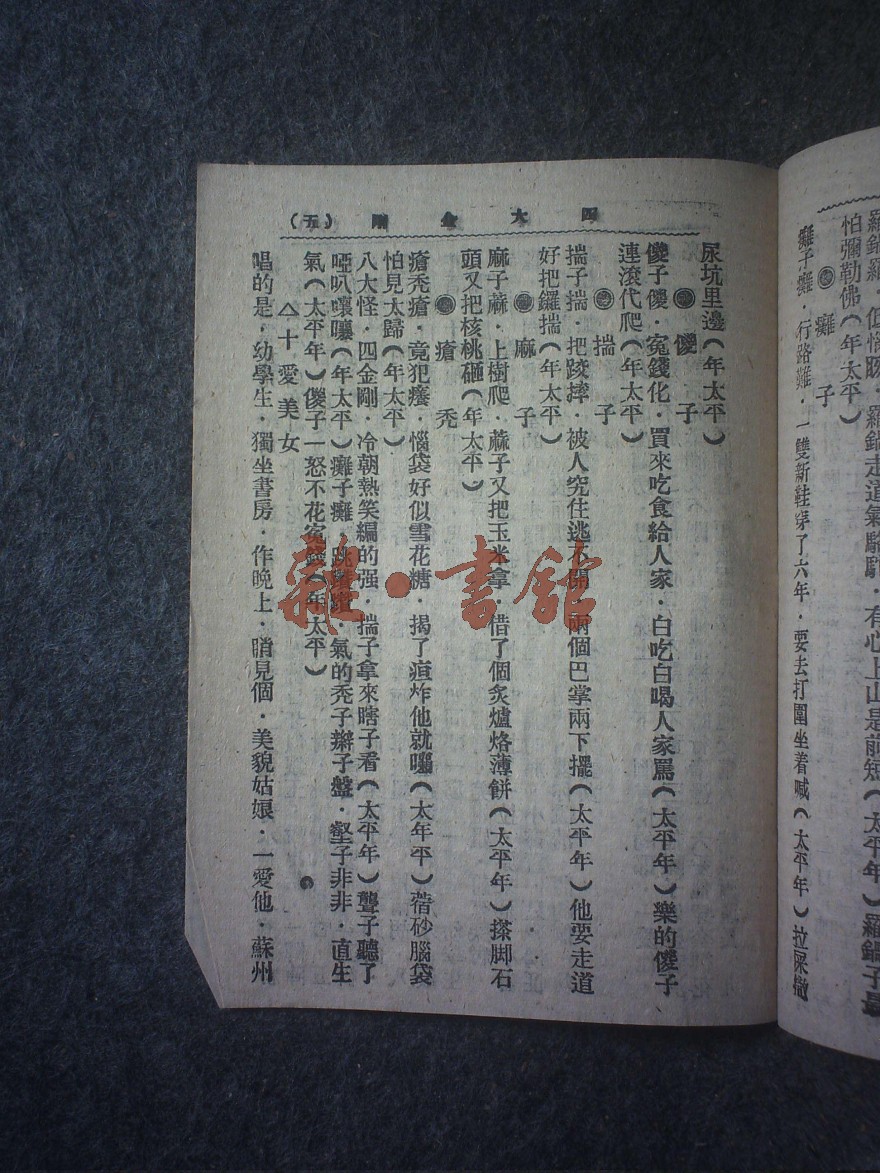 羅鍋子羅鍋走道氣駱駝・有心上山是前短(太平年)羅鍋子是
怕彌勒佛(年太平)
癱子
癱子癱・行路難・一雙新鞋穿了六年・要去打圍坐着喊(太平年)拉屎撒
四大金剛 (五)
尿坑里邊(年太平)
傻子
傻子傻・寃錢化・買來吃食給人家・白吃白喝人家罵(太平年)樂的傻子
連滾代爬(年太平)
揣子
揣子揣・把跤摔・被人究住逃不開・兩個巴掌兩下擺(太平年)他要走道
好把鑼揣(年太平)
麻子
麻子蔴・上樹爬・蔴子又把玉米拿・借了個炙爐烙薄餅(太平年)搽脚石
頭又把核桃砸(年太平)
瘡禿
瘡禿瘡・竟犯癢・惱袋好似雪花糖・揭了疸炸他就嚷(太年平)蓿砂腦袋
怕見太歸(年太平)
八大怪・四金剛・冷朝熱笑編的强・揣子拿來瞎子看(太平年)聾子聽了
啞叭嚷嚷(年太平)癱子癱・氣的禿子辮子盤・壑子非非・直生
氣(太平年)傻子一怒不花寃錢(年太平)
△十愛美女
唱的是・幼學生・獨坐書房・作晚上・哨見個・美貌姑娘・一愛他・蘇州
雜・書館